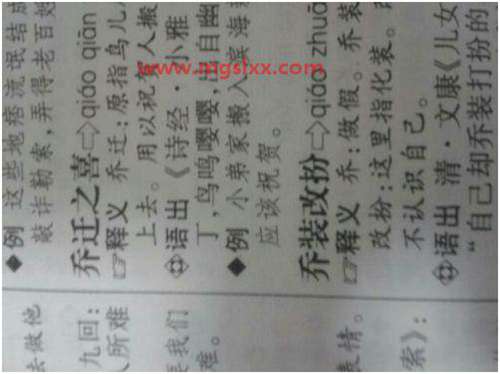 ◆例 这些地痞流氓结成
敲诈勒索，弄得老百姓
乔迁之喜⇨qiáo qiān
☞释义 乔迁：原指鸟儿
上去。用以祝贺人搬
语出《诗经·小雅
丁，鸟鸣嘤嘤，出自幽
◆例 小弟家搬入滨海
应该祝贺。
乔装改扮⇨qiáo zhuā
☞释义 乔：做假。乔装
改扮：这里指化装。
不认识自己。
语出 清·文康《儿女
“自己却乔装打扮的
去做他
九回：
人所难
要我们
难。
表情。
索》：
www.mgsfxx.com